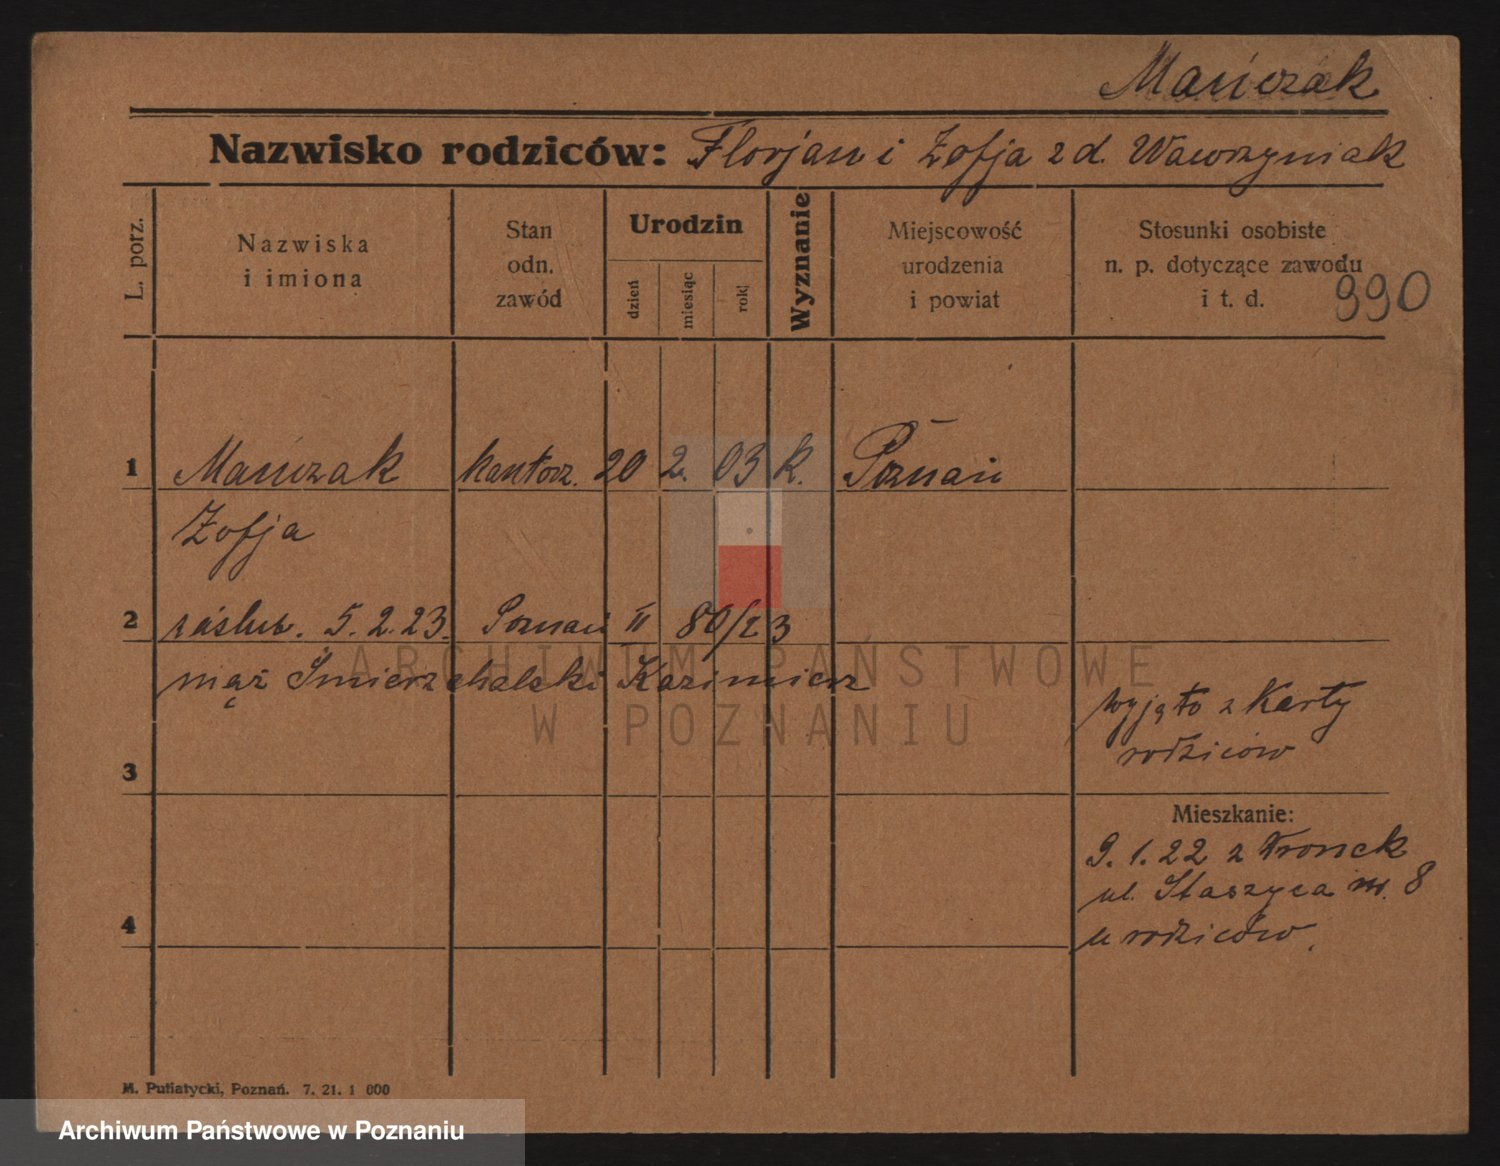 Mańczak
Nazwisko rodziców: Florjan i Zofja z d. Wawrzyniak
L. porz.
Nazwiska
i imiona
Stan
odn.
zawód
Urodzin
dzień
miesiąc
rok
Wyznanie
Miejscowość
urodzenia
i powiat
Stosunki osobiste
n. p. dotyczące zawodu
i t. d.
990
1 Mańczak kantorz. 20 2. 03 k. Poznań
Zofja
2 zaślub. 5.2.23. Poznań II 80/23
mąż Śmierzchalski Kazimierz
wyjęto z Karty
rodziców
3
Mieszkanie:
9.1.22 z Wronek
ul. Staszyca nr. 8
u rodziców.
4
M. Putiatycki, Poznań. 7. 21. 1 000
ARCHIWUM PAŃSTWOWE
W POZNANIU
Archiwum Państwowe w Poznaniu